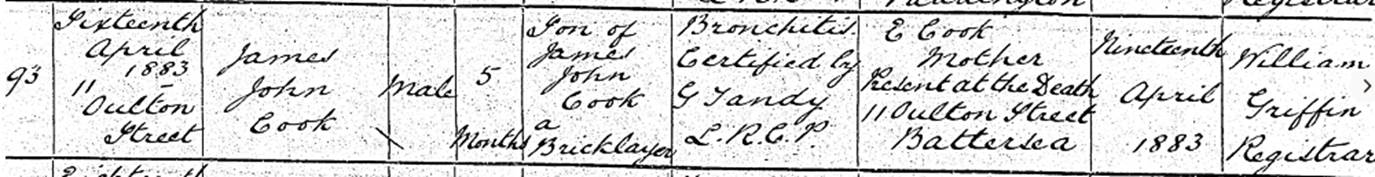 93
Sixteenth
April
1883
11
Oulton
Street
James
John
Cook
Male
5
Months
Son of
James
John
Cook
a
Bricklayer
Bronchitis
Certified by
G Tandy
L.R.C.P.
E Cook
Mother
Present at the Death
11 Oulton Street
Battersea
Nineteenth
April
1883
William
Griffin
Registrar